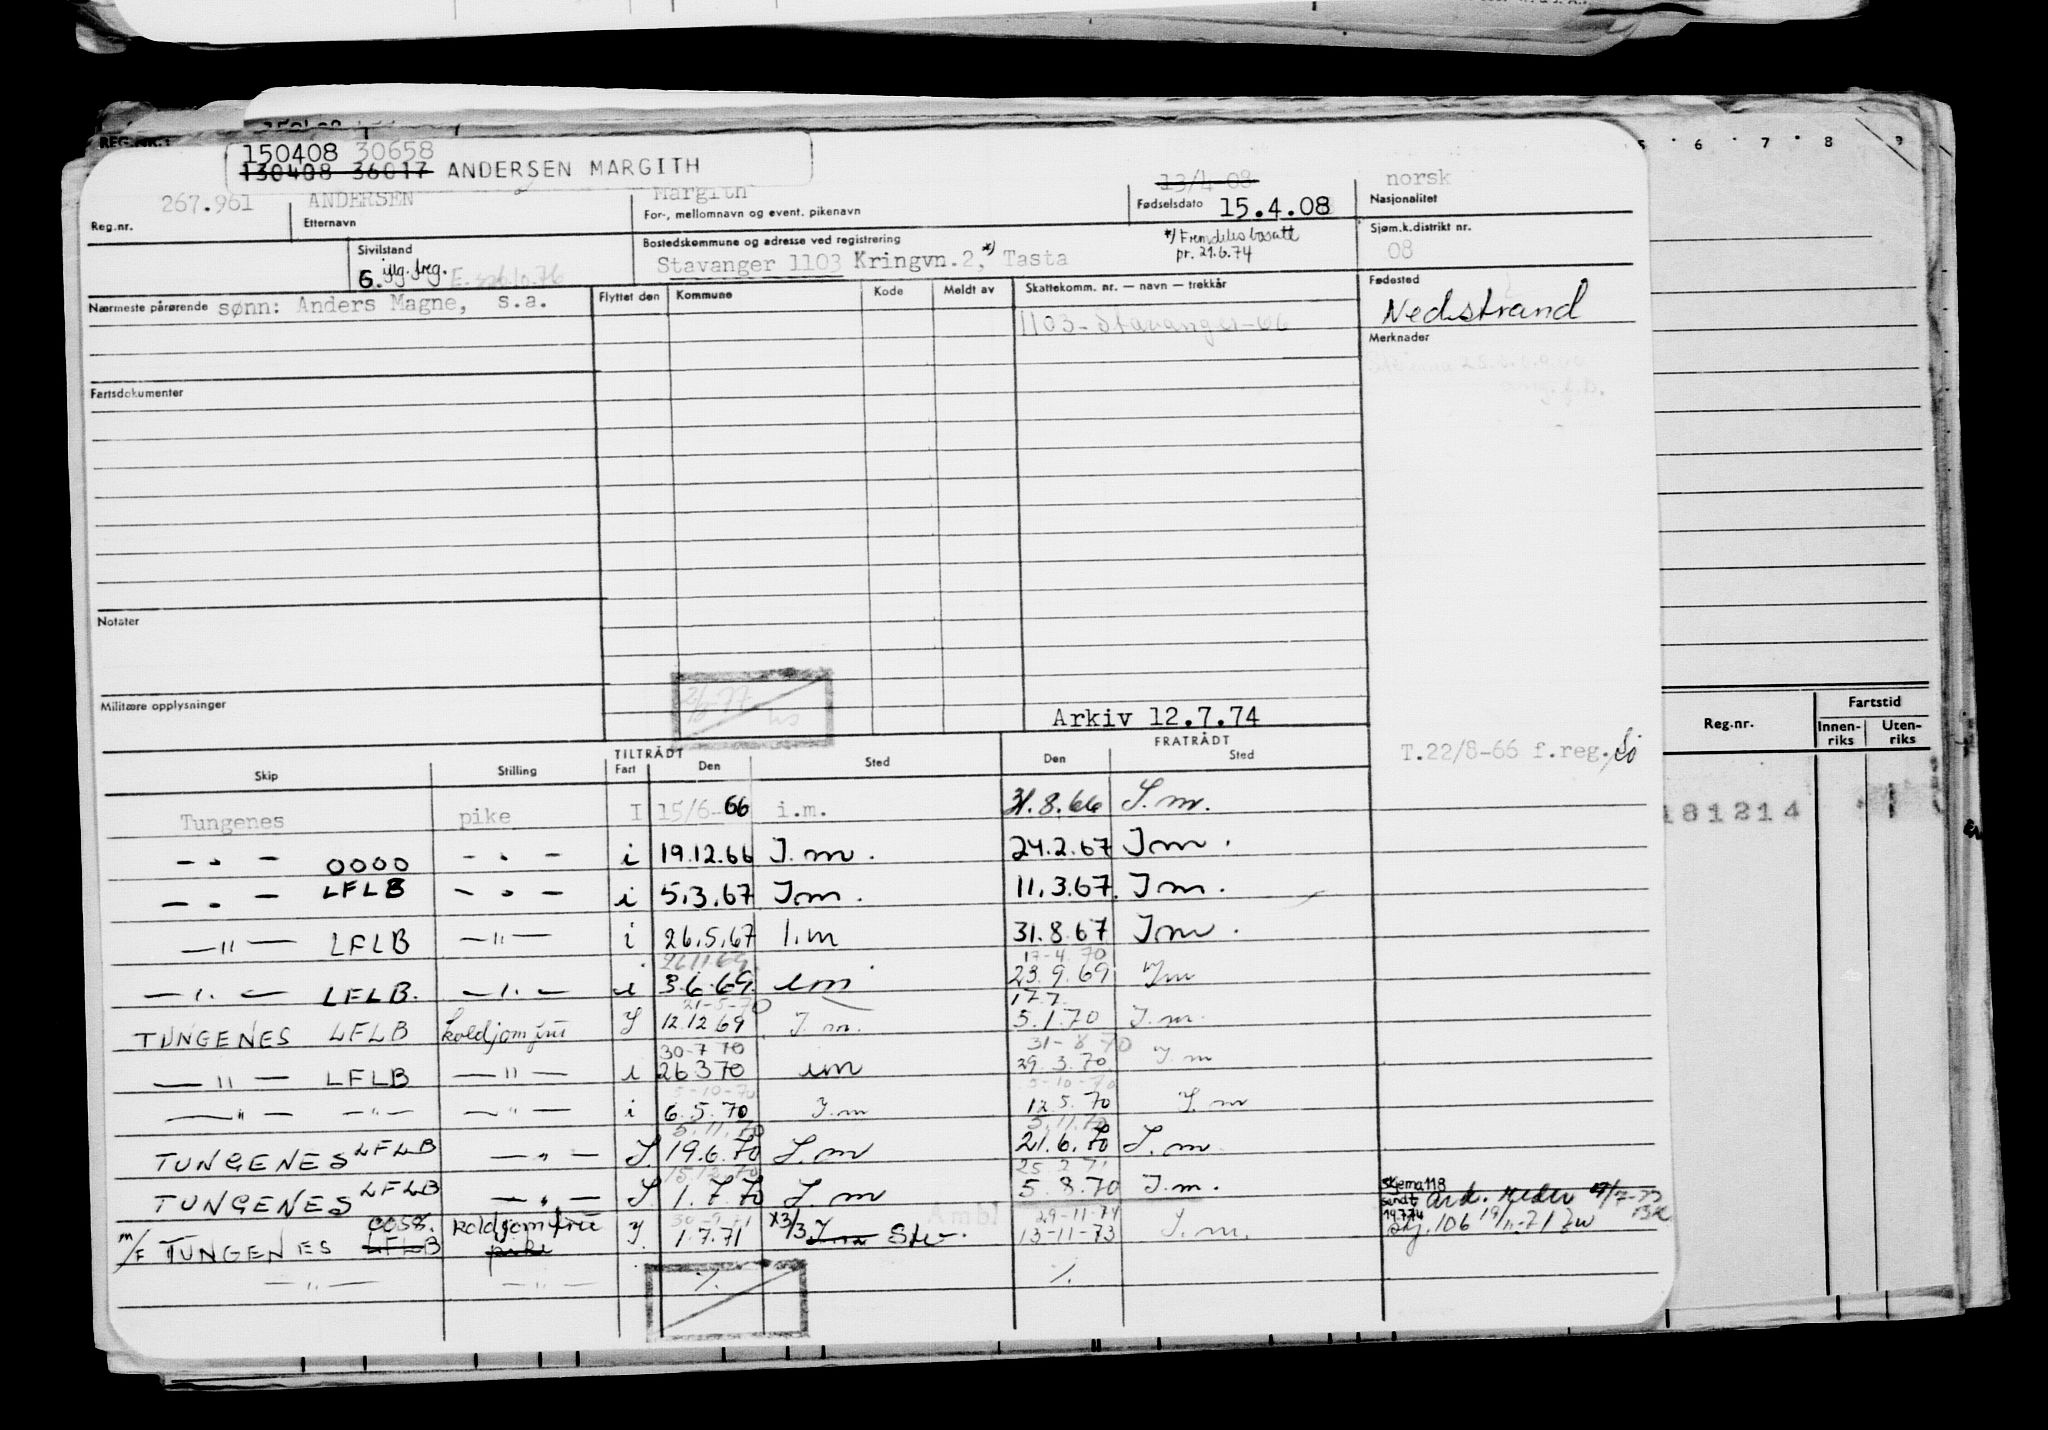 REG.NR.:
150408 30658
130408 36017 ANDERSEN MARGITH
267.961 ANDERSEN Margith 13/4-08 norsk
Reg.nr. Etternavn For-, mellomnavn og event. pikenavn Fødselsdato 15.4.08 Nasjonalitet
Sivilstand Bostedskommune og adresse ved registrering *) Fremdeles bosatt Sjøm.k.distrikt nr.
6. Stavanger 1103 Kringvn.2,*) Tasta pr. 21.6.74 08
Nærmeste pårørende sønn: Anders Magne, s.a. Flyttet den Kommune Kode Meldt av Skattekomm. nr. — navn — trekkår Fødested
1103-Stavanger-66 Nedstrand
Merknader
Fartsdokumenter
Notater
Militære opplysninger
Arkiv 12.7.74
TILTRÅDT FRATRÅDT
Skip Stilling Fart Den Sted Den Sted
T.22/8-66 f.reg.
Tungenes pike I 15/6-66 i.m. 31.8.66 I.m.
- . - 0000 - . - i 19.12.66 I.m. 24.2.67 I m.
- . - LFLB - . - i 5.3.67 I m. 11.3.67. I m.
—"— LFLB —"— i 26.5.67 I.m 31.8.67 I m.
26.11.69. 17-4.70
—"— LFLB. —"— i 3.6.69. i m 23.9.69 I m
21-5-70 17.7
TUNGENES LFLB koldjomfru I 12.12.69 I.m. 5.1.70 I.m.
30-7 70 31-8 70
—"— LFLB —"— i 26 3 70 i m 29.3.70 I.m
5-10-70 5-10-70
—"— —"— —"— i 6.5.70 I.m 12.5.70 I.m
5.11.70 5.11.70
TUNGENES LFLB —"— I. 19.6.70 I.m 21.6.70 I.m
15.12.70 25 2 71
TUNGENES LFLB —"— I. 1.7.70 I.m 5.8.70 I.m.
0058. 29-11-71
m/F TUNGENES LFLB koldjomfru pike I. 1.7.71 x3/3 I.m Stv. 13-11-73 I.m.
—"— —"— ./. ./.
Skjema 118
sendt
19.7.74
106 19/11-71
5 · 6 · 7 · 8 · 9
Reg.nr. Fartstid
Innen-riks Uten-riks
181214